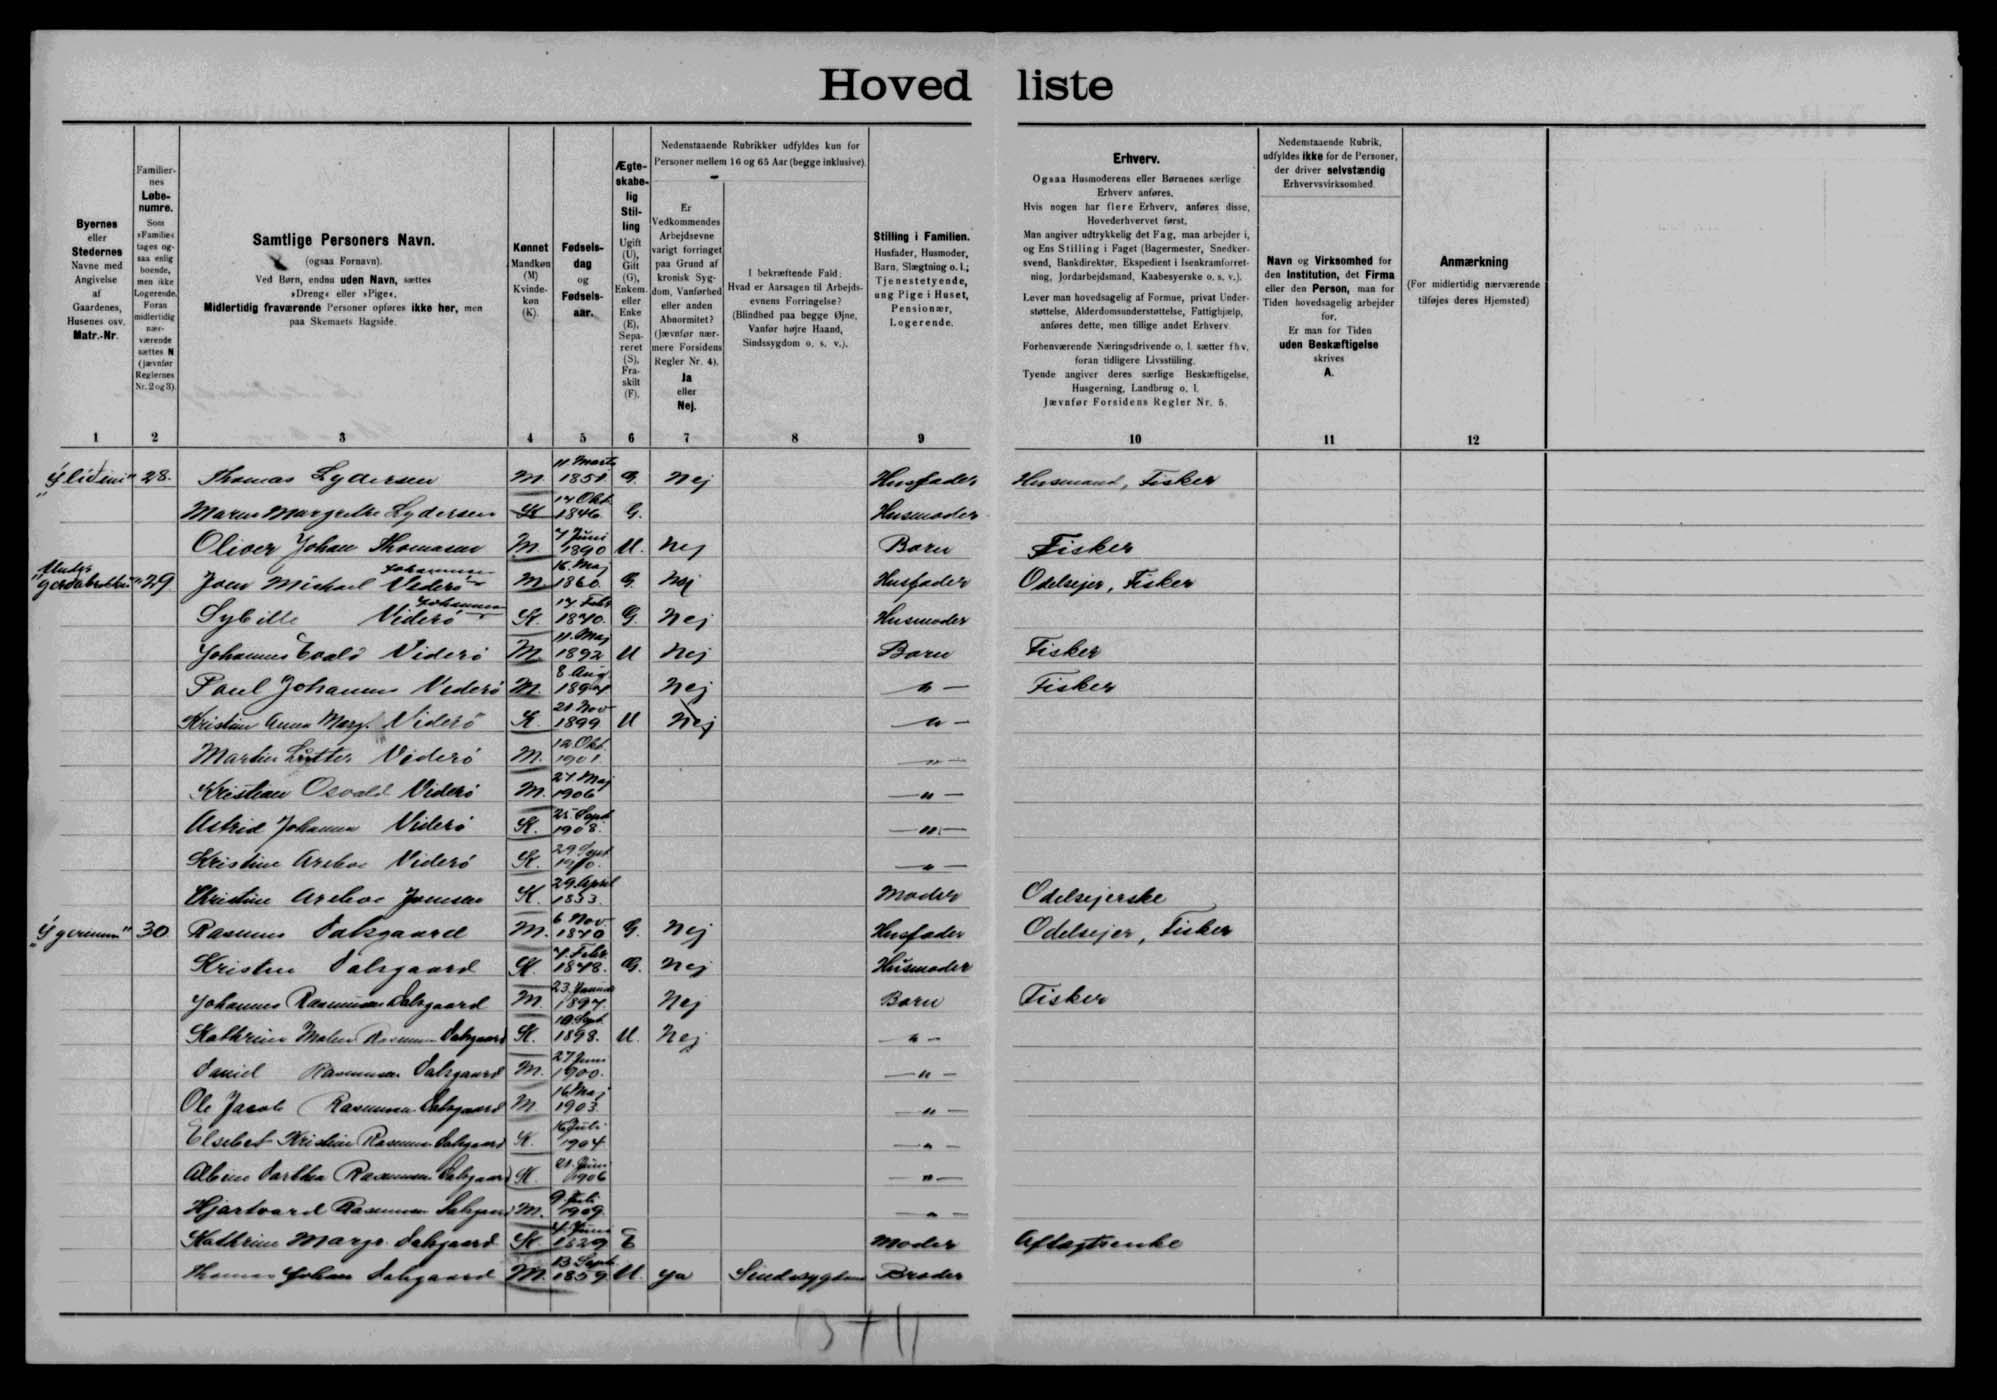 Hovedliste
Byernes
eller
Stedernes
Navne med
Angivelse
af
Gaardenes,
Husenes osv.
Matr.-Nr.
Familier-
nes
Løbe-
numre.
Som
»Familie«
tages og-
saa enlig
boende,
men ikke
Logerende.
Foran
midlertidig
nær-
værende
sættes N
(jævnfør
Reglernes
Nr. 2 og 3).
Samtlige Personers Navn.
(ogsaa Fornavn).
Ved Børn, endnu uden Navn, sættes
»Dreng« eller »Pige«.
Midlertidig fraværende Personer opføres ikke her, men
paa Skemaets Bagside.
Kønnet
Mandkøn
(M)
Kvinde-
køn
(K).
Fødsels-
dag
og
Fødsels-
aar.
Ægte-
skabe-
lig
Stil-
ling
Ugift
(U),
Gift
(G),
Enkem.
eller
Enke
(E),
Sepa-
reret
(S),
Fra-
skilt
(F).
Nedenstaaende Rubrikker udfyldes kun for
Personer mellem 16 og 65 Aar (begge inklusive).
Er
Vedkommendes
Arbejdsevne
varigt forringet
paa Grund af
kronisk Syg-
dom, Vanførhed
eller anden
Abnormitet?
(Jævnfør nær-
mere Forsidens
Regler Nr. 4).
Ja
eller
Nej.
I bekræftende Fald:
Hvad er Aarsagen til Arbejds-
evnens Forringelse?
(Blindhed paa begge Øjne,
Vanfør højre Haand,
Sindssygdom o. s. v.).
Stilling i Familien.
Husfader, Husmoder,
Barn, Slægtning o. l.;
Tjenestetyende,
ung Pige i Huset,
Pensionær,
Logerende.
Erhverv.
Ogsaa Husmoderens eller Børnenes særlige
Erhverv anføres.
Hvis nogen har flere Erhverv, anføres disse,
Hovederhvervet først.
Man angiver udtrykkelig det Fag, man arbejder i,
og Ens Stilling i Faget (Bagermester, Snedker-
svend, Bankdirektør, Ekspedient i Isenkramforret-
ning, Jordarbejdsmand, Kaabesyerske o. s. v.).
Lever man hovedsagelig af Formue, privat Under-
støttelse, Alderdomsunderstøttelse, Fattighjælp,
anføres dette, men tillige andet Erhverv.
Forhenværende Næringsdrivende o. l. sætter fhv.
foran tidligere Livsstilling.
Tyende angiver deres særlige Beskæftigelse,
Husgerning, Landbrug o. l.
Jævnfør Forsidens Regler Nr. 5.
Nedenstaaende Rubrik,
udfyldes ikke for de Personer,
der driver selvstændig
Erhvervsvirksomhed.
Navn og Virksomhed for
den Institution, det Firma
eller den Person, man for
Tiden hovedsagelig arbejder
for.
Er man for Tiden
uden Beskæftigelse
skrives
A.
Anmærkning
(For midlertidig nærværende
tilføjes deres Hjemsted)
1 2 3 4 5 6 7 8 9 10 11 12
28. Thomas Lydersen M. 11. Marts 1851 G. Nej Husfader Husmand, Fisker
Maren Margrethe Lydersen K 14 Okt. 1846 G. Husmoder
Oliver Johan Thomasen M. 7 Juni 1890 U. Nej Barn Fisker
29. Joen Michael Viderö Johannesen M 16. Maj 1860. G. Nej Husfader Odelsejer, Fisker
Sybille Viderö K. 17. Febr 1870. G. Nej Husmoder
Johannes Evald Viderö M 11. Maj 1892 U Nej Barn Fisker
Poul Johannes Viderö M. 8 Aug. 1894 Nej -"- Fisker
Kristine Anna Margr. Viderö K. 21 Nov 1899 U Nej -"-
Martin Lutter Viderö M. 12. Okt. 1901. -"-
Kristian Osvald Viderö M. 27 Maj 1906 -"-
Astrid Johanna Viderö K. 25. Sept 1908. -"-
Kristine Areboe Viderö K. 29. Sept 1910. -"-
Christine Areboe Joensen K. 29. April 1833. Moder Odelsejerske
30 Rasmus Dalsgaard M. 6 Nov 1870 G. Nej Husfader Odelsejer, Fisker
Kristine Dalsgaard K. 7. Febr G. Nej Husmoder
Johannes Rasmussen Dalsgaard M. 23. Januar 1897. Nej Barn Fisker
Kathrine Malene Rasmussen Dalsgaard K. 10. Sept. 1898. U. Nej -"-
Daniel Rasmussen Dalsgaard M. 27 Juni 1900. -"-
Ole Jacob Rasmussen Dalsgaard M 16 Maj 1903. -"-
Elsebet Kristine Rasmussen Dalsgaard K. 16 Juli 1904 -"-
Albine Dorthea Rasmussen Dalsgaard K. 21. Juni 1906 -"-
Hjartvard Rasmussen Dalsgaard M. 9. Juli 1909. -"-
Kathrine Margr. Dalsgaard K. 4. Juni 1829 E Moder Aftægtsenke
Thomas Johan Dalsgaard M. 13 Sept. 1859 U. ja Sindssygdom Broder
13+11